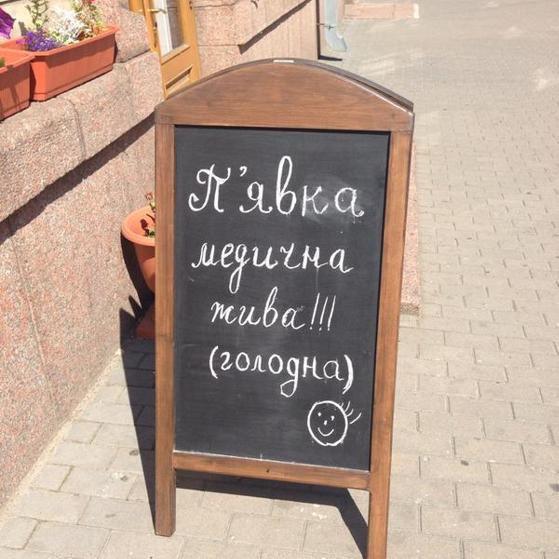 П'явка
медична
жива!!!
(голодна)